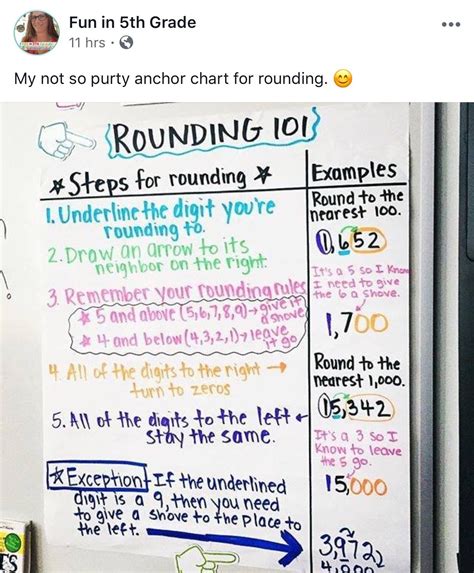 Fun in 5th Grade
11 hrs ·
My not so purty anchor chart for rounding. 😊
ROUNDING 101
*Steps for rounding*
1. Underline the digit you're
rounding to.
2. Draw an arrow to its
neighbor on the right.
3. Remember your rounding rules
* 5 and above (5,6,7,8,9)→give it
a shove
* 4 and below (4,3,2,1)→leave
it go
4. All of the digits to the right →
turn to zeros
5. All of the digits to the left ←
stay the same.
*Exception-If the underlined
digit is a 9, then you need
to give a shove to the place to
the left.
Examples
Round to the
nearest 100.
1,652
It's a 5 so I know
I need to give
the 6 a shove.
1,700
Round to the
nearest 1,000.
15,342
It's a 3 so I
know to leave
the 5 go.
15,000
3,972
4,000